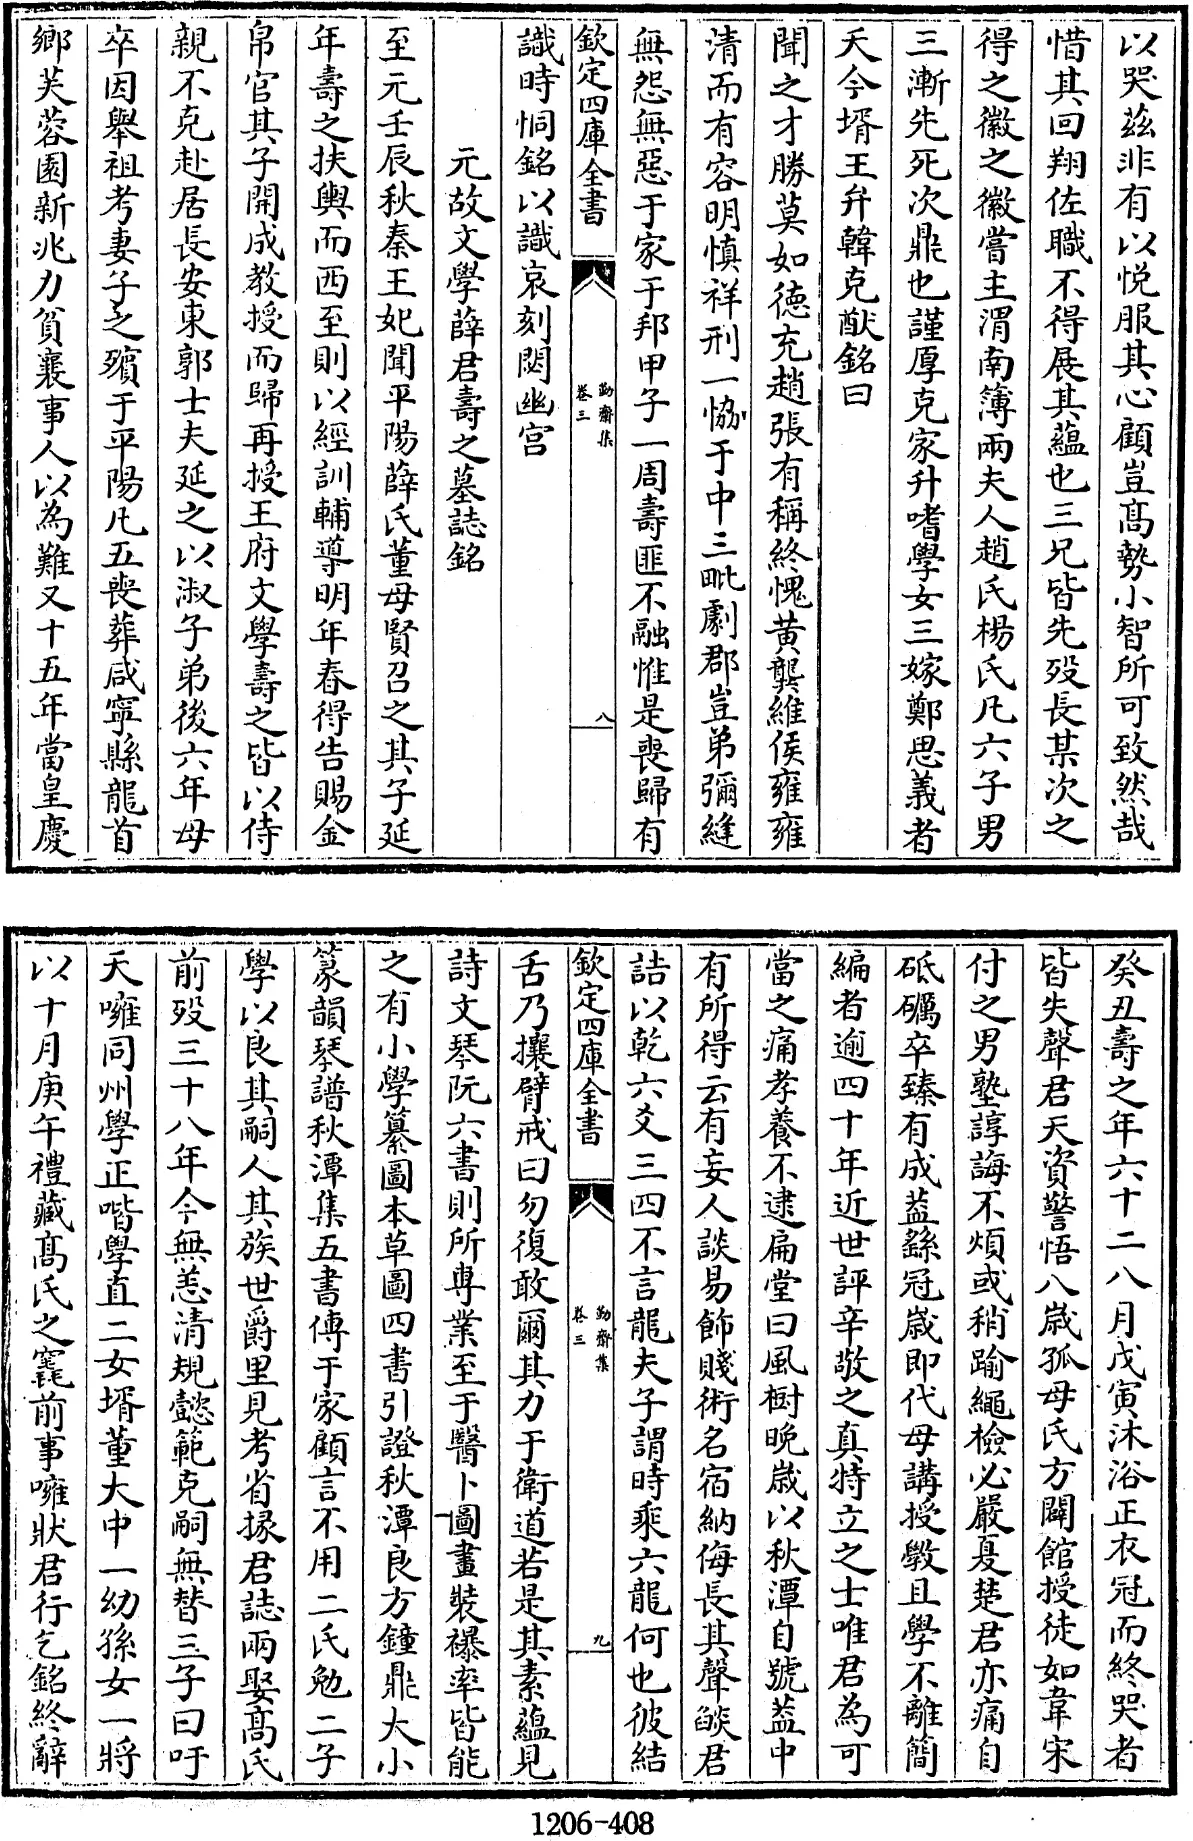 以哭茲非有以悦服其心顧豈髙勢小智所可致然哉
惜其回翔佐職不得展其蘊也三兄皆先殁長某次之
得之徽之徽嘗主渭南簿兩夫人趙氏楊氏凡六子男
三漸先死次鼎也謹厚克家升嗜學女三嫁鄭思義者
夭今壻王弁韓克猷銘曰
聞之才勝莫如徳充趙張有稱終愧黄龔維侯雍雍
清而有容明慎祥刑一協于中三毗劇郡豈弟彌縫
無怨無惡于家于邦甲子一周壽匪不融惟是喪歸有
欽定四庫全書
勤齋集
卷三
八
識時恫銘以識哀刻閟幽宫
元故文學薛君壽之墓誌銘
至元壬辰秋秦王妃聞平陽薛氏董母賢召之其子延
年壽之扶輿而西至則以經訓輔導明年春得告賜金
帛官其子開成教授而歸再授王府文學壽之皆以侍
親不克赴居長安東郭士夫延之以淑子弟後六年母
卒因舉祖考妻子之殯于平陽凡五喪葬咸寜縣龍首
鄉芙蓉園新兆力貧襄事人以為難又十五年當皇慶
癸丑壽之年六十二八月戊寅沐浴正衣冠而終哭者
皆失聲君天資警悟八歲孤母氏方闢館授徒如韋宋
付之男塾諄誨不煩或稍踰繩檢必嚴戛楚君亦痛自
砥礪卒臻有成葢繇冠歲即代母講授斅且學不離簡
編者逾四十年近世評辛敬之真特立之士唯君為可
當之痛孝養不逮扁堂曰風樹晚歲以秋潭自號葢中
有所得云有妄人談易飾賤術名宿納侮長其聲燄君
詰以乾六爻三四不言龍夫子謂時乘六龍何也彼結
欽定四庫全書
勤齋集
卷三
九
舌乃攘臂戒曰勿復敢爾其力于衛道若是其素蘊見
詩文琴阮六書則所専業至于醫卜圖畫裝褾率皆能
之有小學纂圖本草圖四書引證秋潭良方鐘鼎大小
篆韻琴譜秋潭集五書傳于家顧言不用二氏勉二子
學以良其嗣人其族世爵里見考省掾君誌兩娶髙氏
前殁三十八年今無恙清規懿範克嗣無替三子曰吁
夭嚾同州學正喈學直二女壻董大中一幼孫女一將
以十月庚午禮藏髙氏之竁前事嚾狀君行乞銘終辭
1206-408